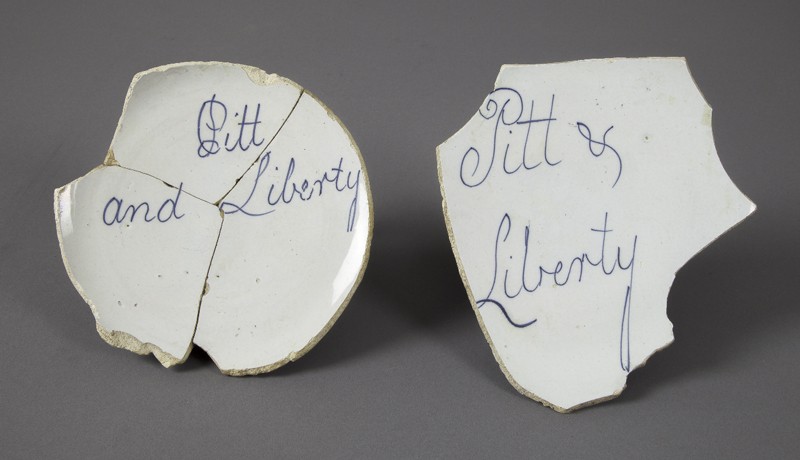 Pitt
and Liberty
Pitt &
Liberty